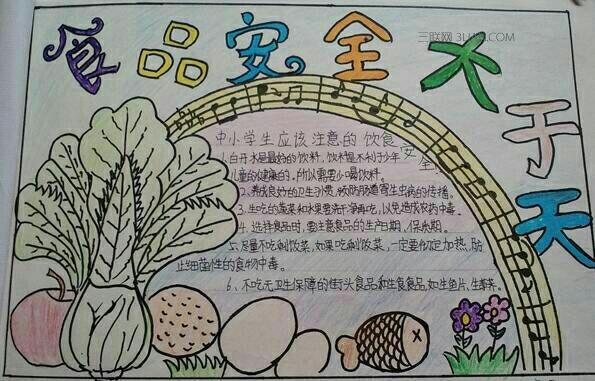 三联网 3LIAN.COM
食品安全大于天
中小学生应该注意的饮食安全
1、白开水是最好的饮料，饮料是不利于少年
儿童的健康的，所以需要少喝饮料。
2、养成良好的卫生习惯，预防肠道寄生虫病的传播。
3、生吃的蔬菜和水果要洗干净再吃，以免造成农药中毒。
4、选择食品时，要注意食品的生产日期、保质期。
5、尽量不吃剩饭菜，如果吃剩饭菜，一定要彻底加热，防
止细菌性的食物中毒。
6、不吃无卫生保障的街头食品和生食食品，如生鱼片、生